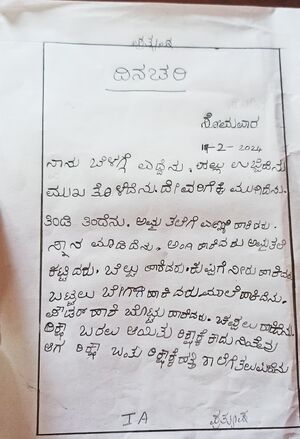 ಪ್ರತ್ಯುಷ
ದಿನಚರಿ
ಸೋಮವಾರ
19-2-2024
ನಾನು ಬೆಳಗ್ಗೆ ಎದ್ದೆನು. ಹಲ್ಲು ಉಜ್ಜಿದೆನು
ಮುಖ ತೊಳೆದೆನು. ದೇವರಿಗೆ ಮುಗಿದೆನು
ತಿಂಡಿ ತಿಂದೆನು. ಅಮ್ಮ ತಲೆಗೆ ಎಣ್ಣೆ ಹಾಕಿದರು.
ಸ್ನಾನ ಮಾಡಿದೆನು. ಅಂಗಿ ಹಾಕಿದರು ಅಮ್ಮ ತಲೆ
ಕಟ್ಟಿದರು. ಬೆಲ್ಟು ಹಾಕಿದರು. ಕುಪ್ಪಿಗೆ ನೀರು ಹಾಕಿದರು
ಬಟ್ಟಲು ಬೇಗ್‌ಗೆ ಹಾಕಿದರು. ಮಾಲೆ ಹಾಕಿದೆನು.
ಪೌಡರ್ ಹಾಕಿ ಬೊಟ್ಟು ಹಾಕಿದರು. ಚಪ್ಪಲು ಹಾಕಿದೆನು.
ರಿಕ್ಷಾ ಬರಲು ಆಯಿತು ರಿಕ್ಷಾಕ್ಕೆ ಕಾದು ನಿಂತೆವು
ಆಗ ರಿಕ್ಷಾ ಬಂತು ರಿಕ್ಷಾಕ್ಕೆ ಹತ್ತಿ ಶಾಲೆಗೆ ತಲುಪಿದೆನು
I A
ಪ್ರತ್ಯುಷ